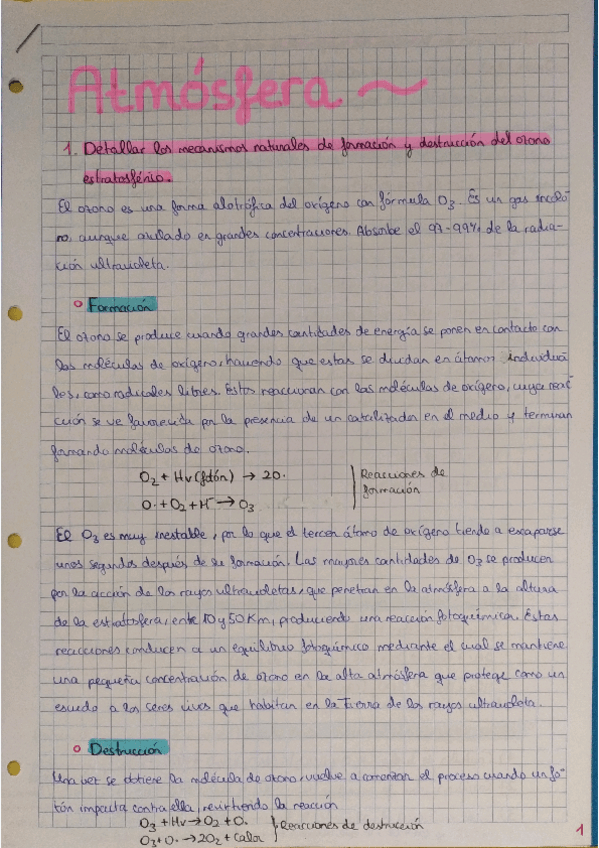 Atmósfera ~
1. Detallar los mecanismos naturales de formación y destrucción del ozono
estratosférico.
El ozono es una forma alotrófica del oxígeno con fórmula O₃. Es un gas incolo-
ro, aunque azulado en grandes concentraciones. Absorbe el 97-99% de la radia-
ción ultravioleta.
o Formación
El ozono se produce cuando grandes cantidades de energía se ponen en contacto con
las moléculas de oxígeno, haciendo que estas se dividan en átomos individua
les, como radicales libres. Estos reaccionan con las moléculas de oxígeno, cuya reac-
ción se ve favorecida por la presencia de un catalizador en el medio y terminan
formando moléculas de ozono.
O₂ + Hv (fotón) → 2O·
O· + O₂ + H → O₃
Reacciones de
formación
El O₃ es muy inestable, por lo que el tercer átomo de oxígeno tiende a escaparse
unos segundos después de su formación. Las mayores cantidades de O₃ se producen
por la acción de los rayos ultravioletas, que penetran en la atmósfera a la altura
de la estratosfera, entre 10 y 50 Km, produciendo una reacción fotoquímica. Estas
reacciones conducen a un equilibrio fotoquímico mediante el cual se mantiene
una pequeña concentración de ozono en la alta atmósfera que protege como un
escudo a los seres vivos que habitan en la Tierra de los rayos ultravioleta.
o Destrucción
Una vez se obtiene la molécula de ozono, vuelve a comenzar el proceso cuando un fo-
tón impacta contra ella, revirtiendo la reacción
O₃ + Hv → O₂ + O·
O₃ + O· → 2O₂ + Calor
Reacciones de destrucción
1